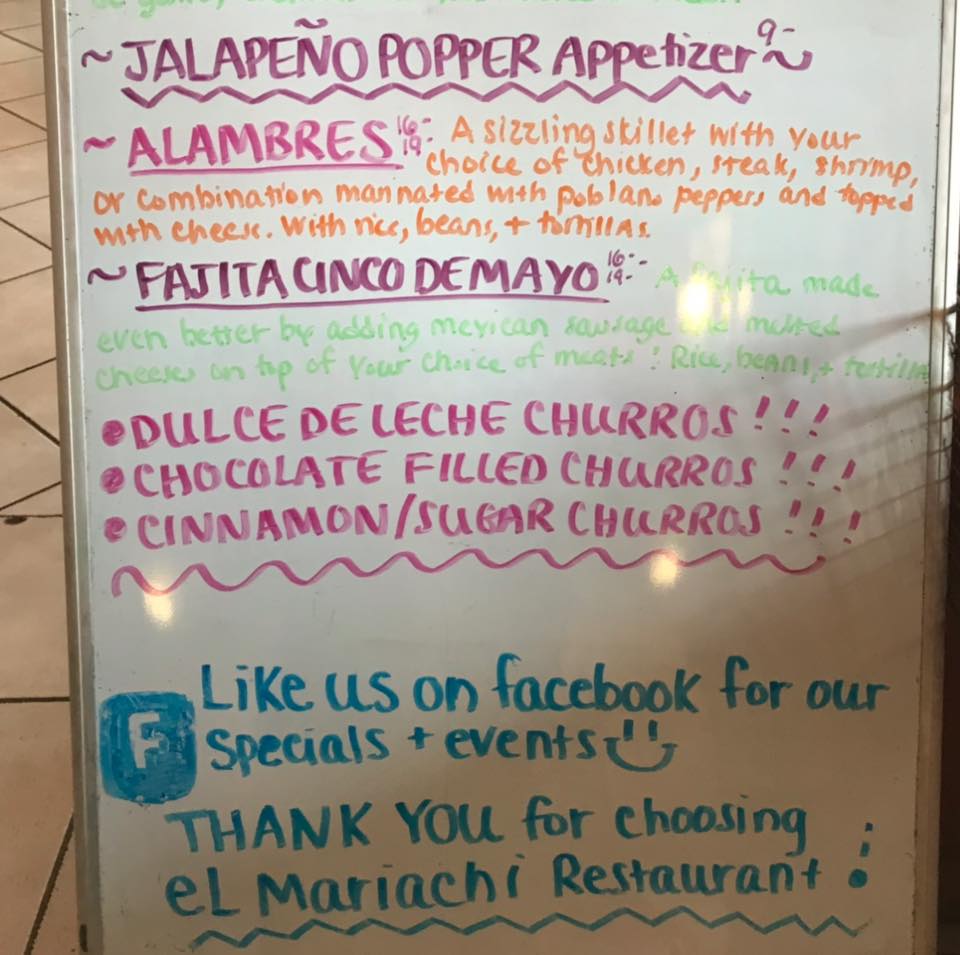 ~ JALAPEÑO POPPER Appetizer 9- ~
~ ALAMBRES 16- 19- A sizzling skillet with your
choice of chicken, steak, shrimp,
or combination marinated with poblano peppers and topped
with cheese. With rice, beans, + tortillas.
~ FAJITA CINCO DE MAYO 16- 19- A fajita made
even better by adding mexican sausage and melted
cheese on top of your choice of meats! Rice, beans, + tortilla
• DULCE DE LECHE CHURROS !!!
• CHOCOLATE FILLED CHURROS !!!
• CINNAMON/SUGAR CHURROS !!!
F Like us on facebook for our
specials + events
THANK YOU for choosing
eL Mariachi Restaurant!